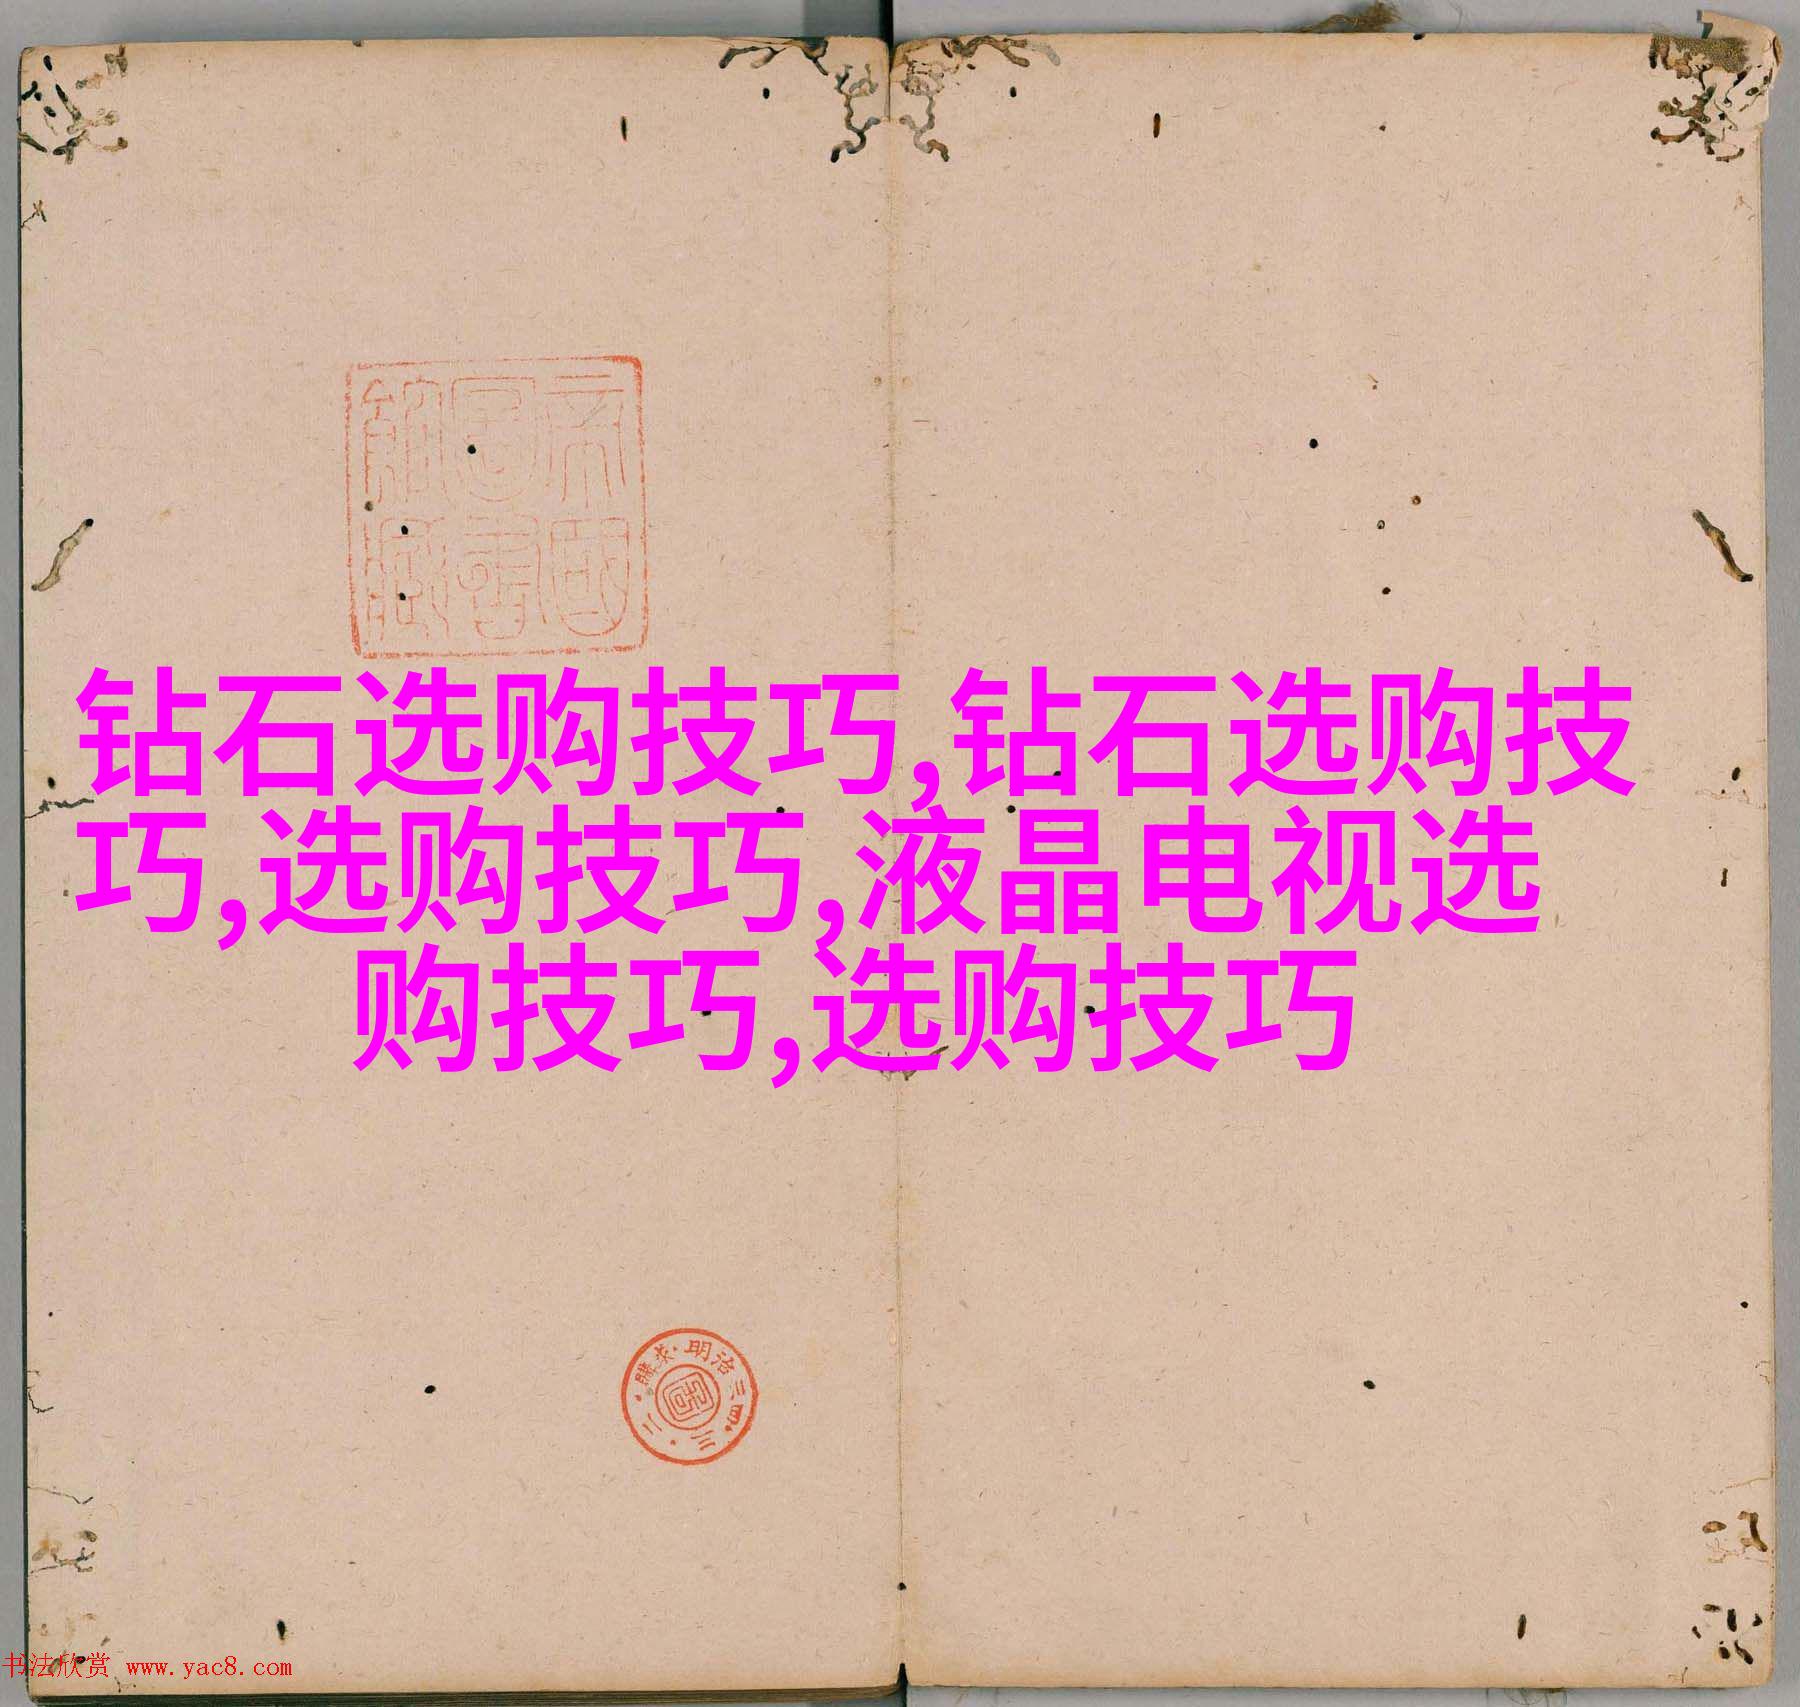 帝国
图书
馆藏
钻石选购技巧,钻石选购技
巧,选购技巧,液晶电视选
购技巧,选购技巧
明治三四·三·二·購求·
书法欣赏 www.yac8.com